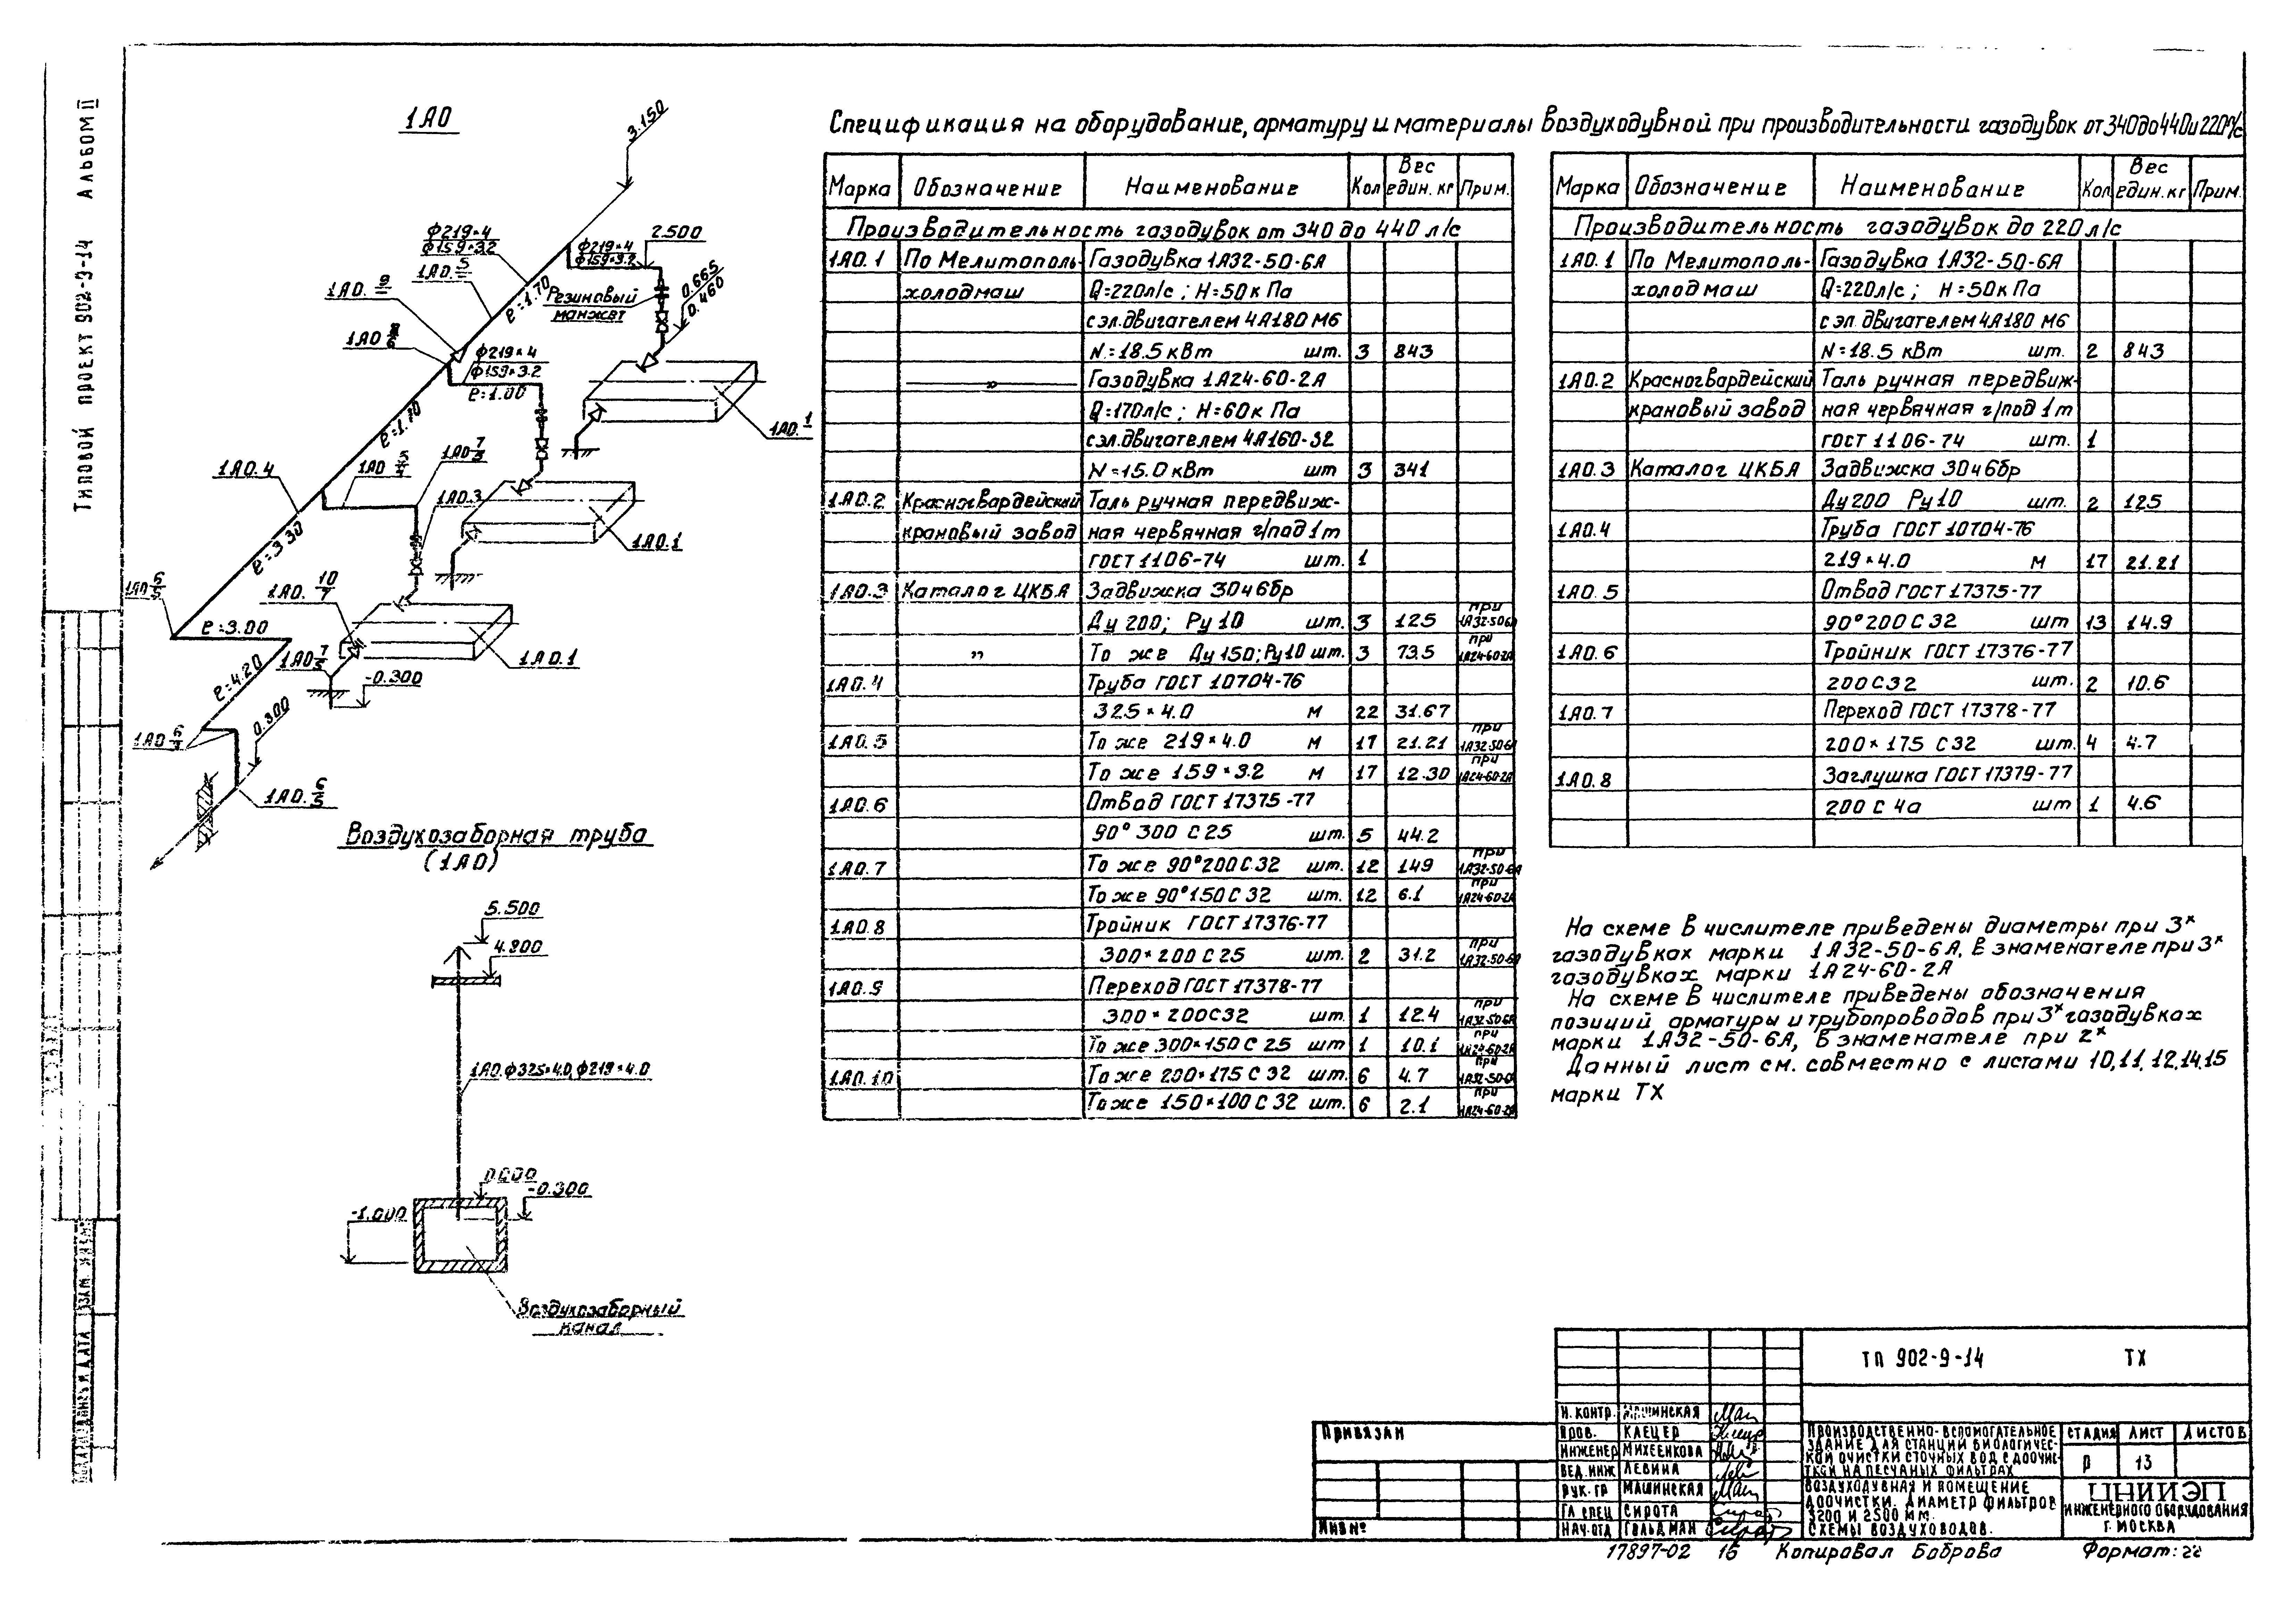 Типовой проект 902-9-14 Альбом II
1А0
3.150
ϕ219×4
ϕ159×3.2
1А0. 5
ϕ219×4
ϕ159×3.2
2.500
1А0. 9
ℓ=1.70
Резиновый
манжет
0.665
0.460
1А0 8/6
ϕ219×4
ϕ159×3.2
ℓ=1.00
1А0. 1
1А0.4
1А0 5/4
1А0 7/5
1А0.3
1А0.1
ℓ=3.30
1А0 6/5
1А0. 10/7
ℓ=3.00
1А0 7/5
1А0.1
ℓ=4.20
-0.300
0.300
1А0. 6/5
Воздухозаборная труба
(1А0)
5.500
4.800
1А0.ϕ325×4.0,ϕ219×4.0
0.000
-0.300
-1.000
Воздухозаборный
канал
Спецификация на оборудование, арматуру и материалы воздуходувной при производительности газодувок от 340 до 440 и 220 л/с
Марка Обозначение Наименование Кол Вес един. кг Прим.
Производительность газодувок от 340 до 440 л/с
1А0.1 По Мелитополь- Газодувка 1А32-50-6А
холодмаш Q=220л/с ; H=50к Па
с эл.двигателем 4А180 М6
N=18.5 кВт шт. 3 843
—"— Газодувка 1А24-60-2А
Q=170л/с ; H=60к Па
с эл.двигателем 4А160-S2
N=15.0 кВт шт 3 341
1А0.2 Красногвардейский Таль ручная передвиж-
крановый завод ная червячная г/под 1т
ГОСТ 1106-74 шт. 1
1А0.3 Каталог ЦКБА Задвижка 30ч6бр
Ду 200; Ру 10 шт. 3 125 при 1А32-50-6А
" То же Ду 150; Ру10 шт. 3 73.5 при 1А24-60-2А
1А0.4 Труба ГОСТ 10704-76
325×4.0 м 22 31.67
1А0.5 То же 219×4.0 м 17 21.21 при 1А32-50-6А
То же 159×3.2 м 17 12.30 при 1А24-60-2А
1А0.6 Отвод ГОСТ 17375-77
90° 300 С 25 шт. 5 44.2
1А0.7 То же 90°200 С 32 шт. 12 149 при 1А32-50-6А
То же 90°150 С 32 шт. 12 6.1 при 1А24-60-2А
1А0.8 Тройник ГОСТ 17376-77
300×200 С 25 шт. 2 31.2 при 1А32-50-6А
1А0.9 Переход ГОСТ 17378-77
300×200С32 шт. 1 12.4 при 1А32-50-6А
То же 300×150 С 25 шт 1 10.1 при 1А24-60-2А
1А0.10 То же 200×175 С 32 шт. 6 4.7 при 1А32-50-6А
То же 150×100 С 32 шт. 6 2.1 при 1А24-60-2А
Марка Обозначение Наименование Кол Вес един. кг Прим.
Производительность газодувок до 220 л/с
1А0.1 По Мелитополь- Газодувка 1А32-50-6А
холодмаш Q=220л/с ; H=50к Па
с эл. двигателем 4А180 М6
N=18.5 кВт шт. 2 843
1А0.2 Красногвардейский Таль ручная передвиж-
крановый завод ная червячная г/под 1т
ГОСТ 1106-74 шт. 1
1А0.3 Каталог ЦКБА Задвижка 30ч6бр
Ду 200 Ру 10 шт. 2 125
1А0.4 Труба ГОСТ 10704-76
219×4.0 м 17 21.21
1А0.5 Отвод ГОСТ 17375-77
90° 200 С 32 шт 13 14.9
1А0.6 Тройник ГОСТ 17376-77
200 С32 шт. 2 10.6
1А0.7 Переход ГОСТ 17378-77
200×175 С32 шт. 4 4.7
1А0.8 Заглушка ГОСТ 17379-77
200 С 4а шт 1 4.6
На схеме в числителе приведены диаметры при 3х
газодувках марки 1А32-50-6А, в знаменателе при 3х
газодувках марки 1А24-60-2А
На схеме в числителе приведены обозначения
позиций арматуры и трубопроводов при 3х газодувках
марки 1А32-50-6А, в знаменателе при 2х
Данный лист см. совместно с листами 10,11,12,14,15
марки ТХ
ТП 902-9-14 ТХ
Привязан
Инв №
Н. контр. Машинская
Пров. Клецер
Инженер Михеенкова
Вед. инж Левина
Рук. гр Машинская
Гл спец Сирота
Нач. отд Гольдман
Производственно-вспомогательное
здание для станций биологичес-
кой очистки сточных вод с доочис-
ткой на песчаных фильтрах
Стадия Лист Листов
Р 13
Воздуходувная и помещение
доочистки. Диаметр фильтров
3200 и 2500 мм.
Схемы воздуховодов.
ЦНИИЭП
инженерного оборудования
г. Москва
17897-02 16 Копировал Боброва Формат: 22